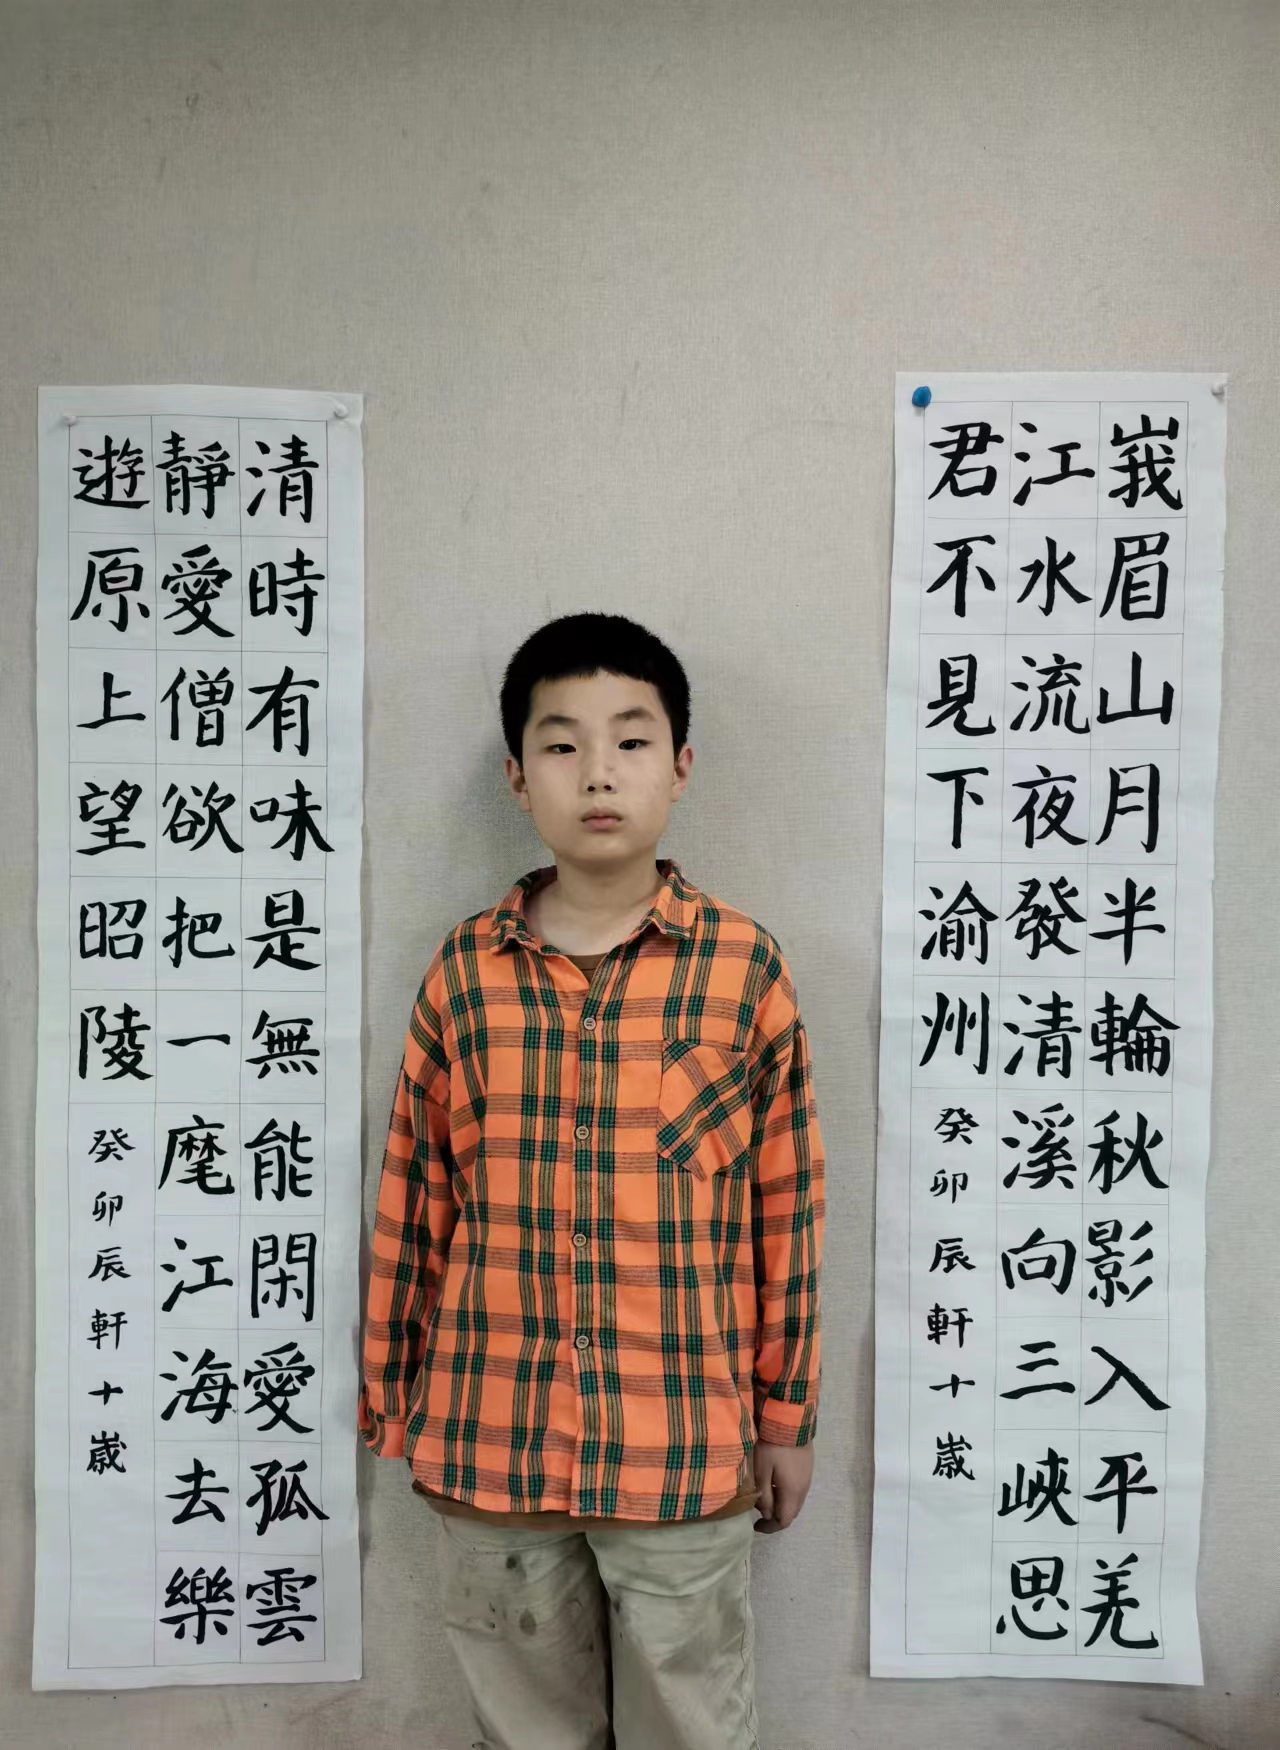 峩眉山月半輪秋影入平羌
江水流夜發清溪向三峽思
君不見下渝州
癸卯辰軒十歲
清時有味是無能閑愛孤雲
靜愛僧欲把一麾江海去樂
遊原上望昭陵
癸卯辰軒十歲